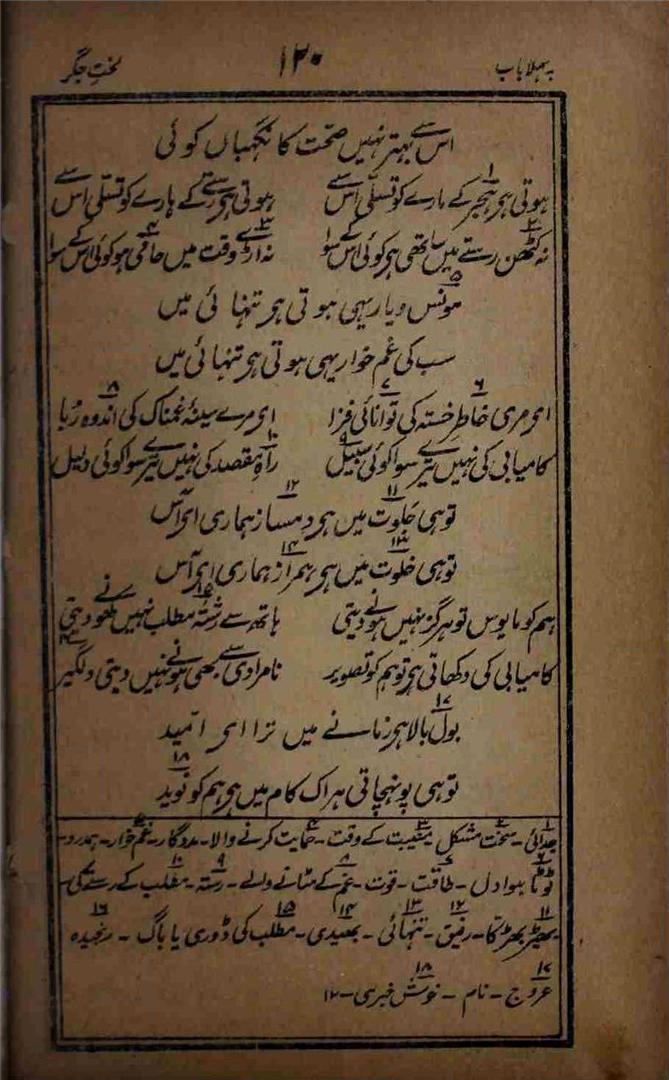 پہلا باب ۱۲۰ لختِ جگر
اس سے بہتر نہیں صحت کا نگہباں کوئی
ہوتی ہر ہجر کے مارے کو تسلی اس سے ہوتی ہر رستے کے ہارے کو تسلی اس سے
نہ کٹھن رستے میں ساتھی ہر کوئی اس کے سوا نہ اڑے وقت میں حامی ہو کوئی اس کے سوا
مونس و یار یہی ہوتی ہر تنہائی میں
سب کی غم خوار یہی ہوتی ہر تنہائی میں
ای مری خاطرِ خستہ کی توانائی فزا ای مرے سینۂ غمناک کی اندوہ رُبا
کامیابی کی نہیں تیرے سوا کوئی سبیل راہِ مقصد کی نہیں تیرے سوا کوئی دلیل
تو ہی جلوت میں ہر دمساز ہماری ای آس
تو ہی خلوت میں ہر ہمراز ہماری ای آس
ہم کو مایوس تو ہرگز نہیں ہونے دیتی ہاتھ سے رشتۂ مطلب نہیں کھونے دیتی
کامیابی کی دکھاتی ہر تو ہم کو تصویر نامرادی سے بھی ہونے نہیں دیتی دلگیر
بول بالا ہر زمانے میں ترا ای امّید
تو ہی پونہچاتی ہر اک کام میں ہر ہم کو نوید
۱ جدائی - ۲ سخت مشکل ۳ مصیبت کے وقت - ۴ حمایت کرنے والا - مددگار - ۵ غم خوار - ہمدرد -
۶ ٹوٹا ہوا دل - ۷ طاقت - قوت - ۸ غم کے مٹانے والے - ۹ رستہ - ۱۰ مطلب کے رستے کی -
۱۱ بھیڑ بھڑکا - ۱۲ رفیق - ۱۳ تنہائی - ۱۴ بھیدی - ۱۵ مطلب کی ڈوری یا باگ - ۱۶ رنجیدہ
۱۷ عروج - نام - ۱۸ خوش خبری - ۱۲